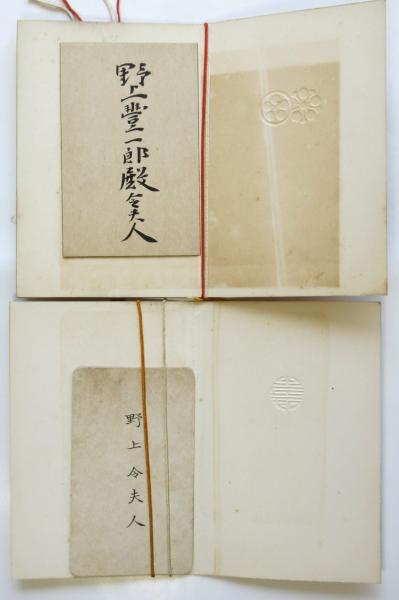 野上豐一郎殿令夫人
野上令夫人